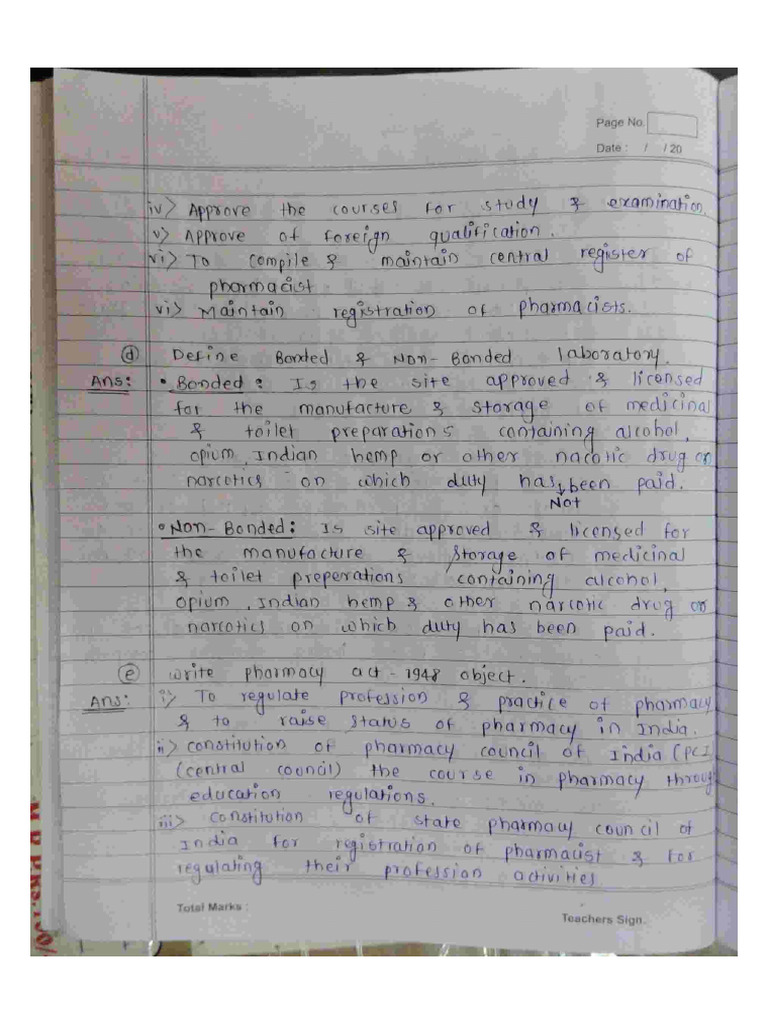 Page No.
Date : / / 20
iv> Approve the courses for study & examination.
v> Approve of foreign qualification.
vi> To compile & maintain central register of
pharmacist
vi> Maintain registration of pharmacists.
d Define Bonded & Non-Bonded laboratory.
Ans: • Bonded: Is the site approved & licensed
for the manufacture & storage of medicinal
& toilet preparations containing alcohol,
opium, Indian hemp or other nacotic drug or
narcotics on which duty has been paid.
Not
• Non-Bonded: Is site approved & licensed for
the manufacture & storage of medicinal
& toilet preperations containing alcohol,
Opium, Indian hemp & other narcotic drug or
narcotics on which duty has been paid.
e write pharmacy act - 1948 object.
Ans: i> To regulate profession & practice of pharmacy
& to raise status of pharmacy in India.
ii> constitution of pharmacy council of India (PCI
(central council) the course in pharmacy through
education regulations.
iii> constitution of state pharmacy council of
India for registration of pharmacist & for
regulating their profession activities
Total Marks :
Teachers Sign.